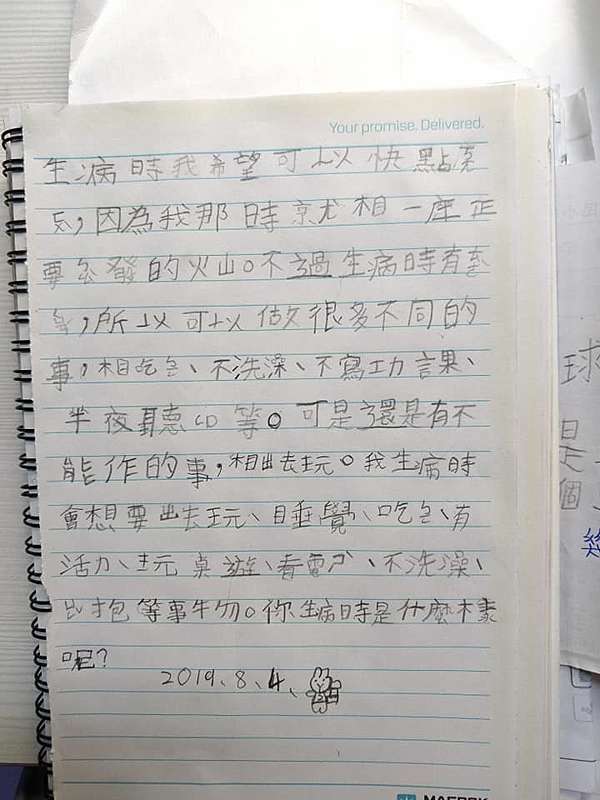 Your promise. Delivered.
生病時我希望可以快點
，因為我那時就相一座正
要爆發的火山。不過生病時有
，所以可以做很多不同的
事，相吃包、不洗澡、不寫功課、
半夜聽CD等。可是還是有不
能作的事，相出去玩。我生病時
會想要出去玩、睡覺、吃包、有
活力、玩桌遊、看電、不洗澡、
等事物。你生病時是什麼樣
呢？
2019、8、4、
球
是
個